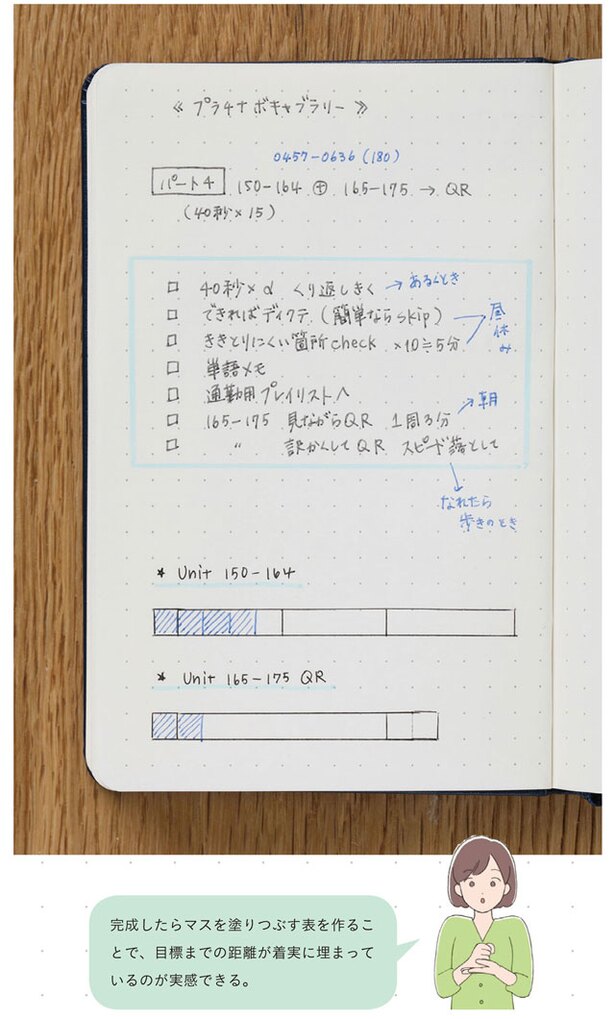 ≪ プラチナボキャブラリー ≫
0457-0636 (180)
パート4 150-164 ⊕ 165-175 → QR
(40秒×15)
□ 40秒×α くり返しきく → あるくとき
□ できればディクテ (簡単ならskip)
□ ききとりにくい箇所check ×10≒5分
昼休み
□ 単語メモ
□ 通勤用プレイリストへ
□ 165-175 見ながらQR 1周3分 → 朝
□ 〃 訳かくしてQR スピード落として
なれたら
歩きのとき
* Unit 150-164
* Unit 165-175 QR
完成したらマスを塗りつぶす表を作るこ
とで、目標までの距離が着実に埋まって
いるのが実感できる。